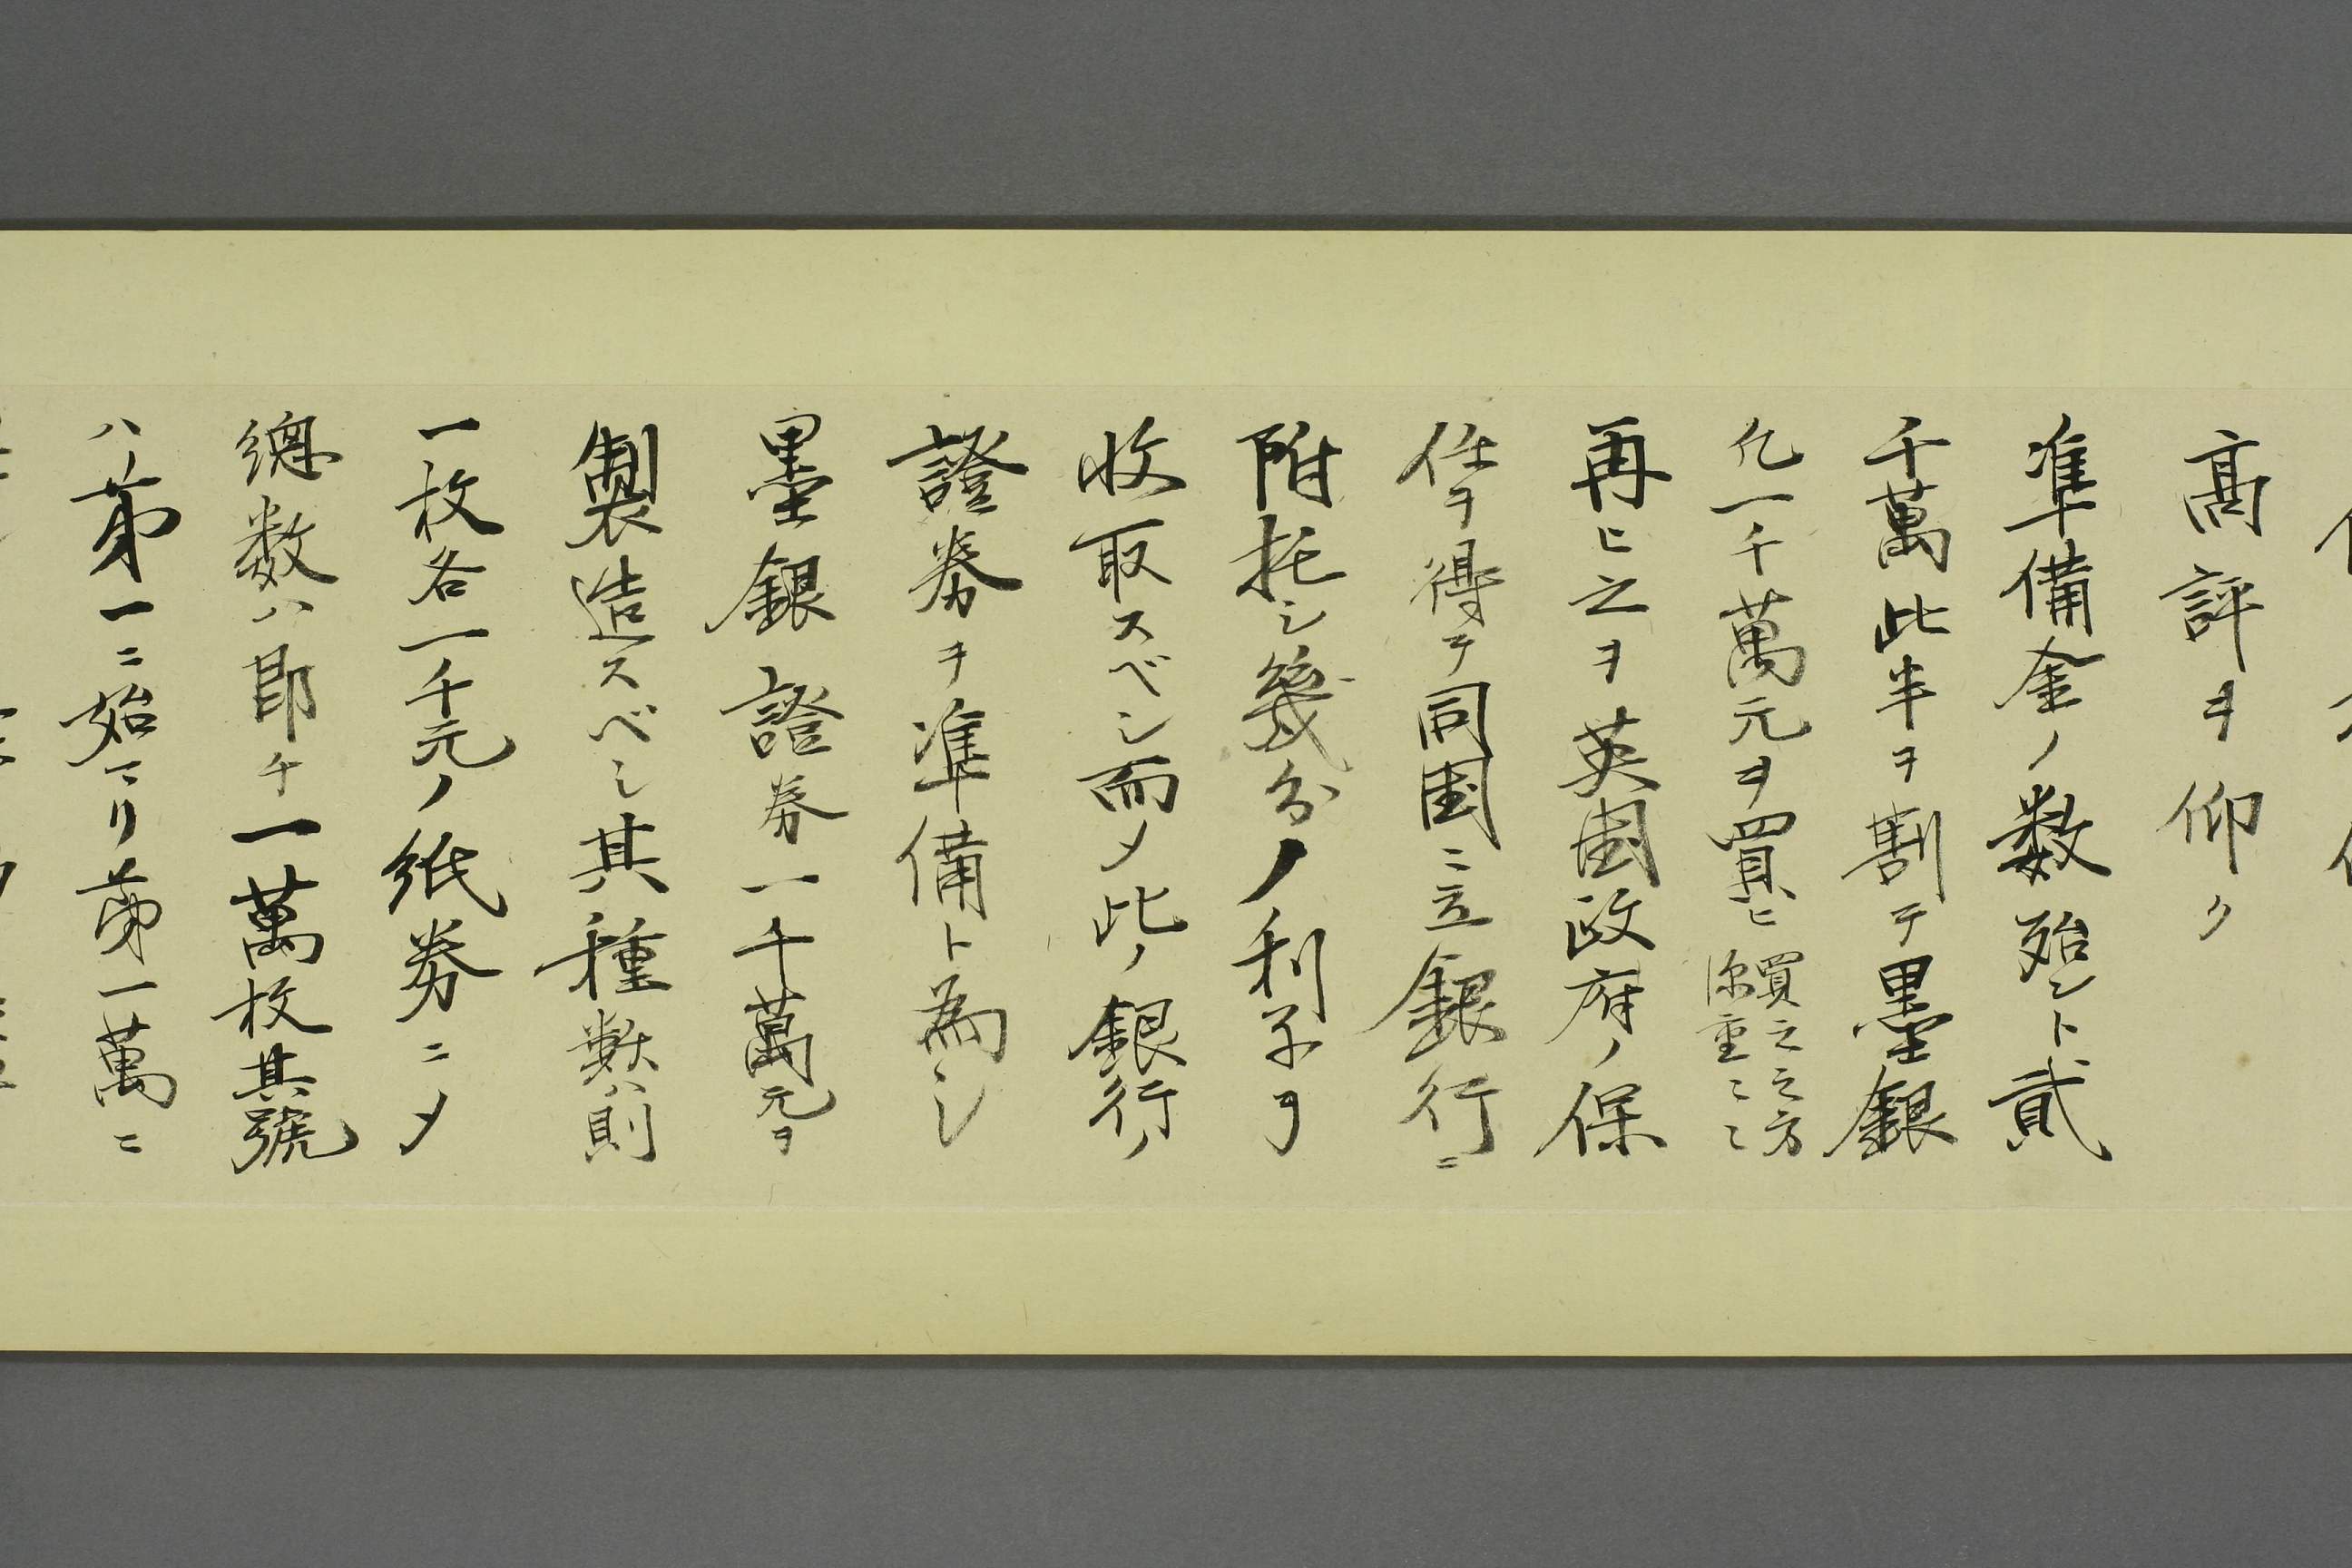 高評ヲ仰ク
準備金ノ数殆ント貳
千萬此半ヲ割テ墨銀
凡一千萬元ヲ買ヒ買之之方
深重ニニ
再ヒ之ヲ英国政府ノ保
任ヲ得テ同国ニ立銀行ニ
附托シ幾分ノ利子ヲ
收取スベシ而メ此ノ銀行ノ
證券ヲ準備ト為シ
墨銀證券一千萬元ヲ
製造スベシ其種数ハ則
一枚各一千元ノ紙券ニメ
總数ハ即チ一萬枚其號
ハ第一ニ始マリ第一萬ニ